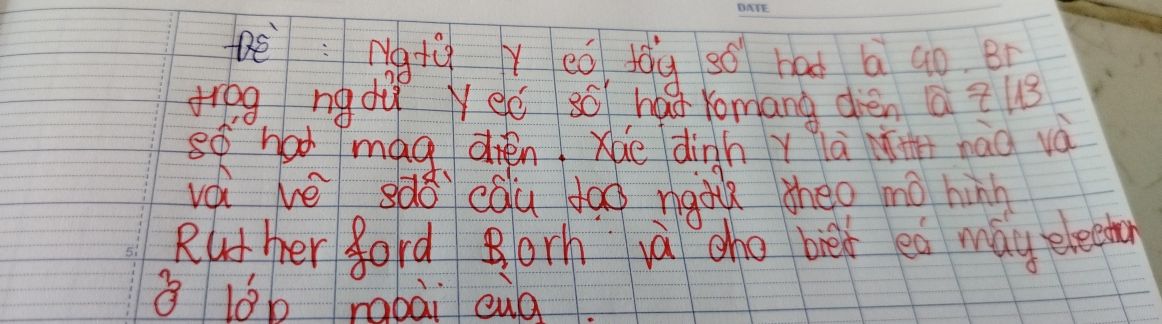 DATE
Đề : Ngtử Y có tổng số hạt là 40. Br
trog ngtử Y có số hạt komang điện là 7/13
số hạt mag điện. Xác định Y là NTHH nào và
và vẽ sđồ cấu tạo ngtử theo mô hình
Rutherford Borh và cho biết có mấy electron
ở lớp ngoài cùg.